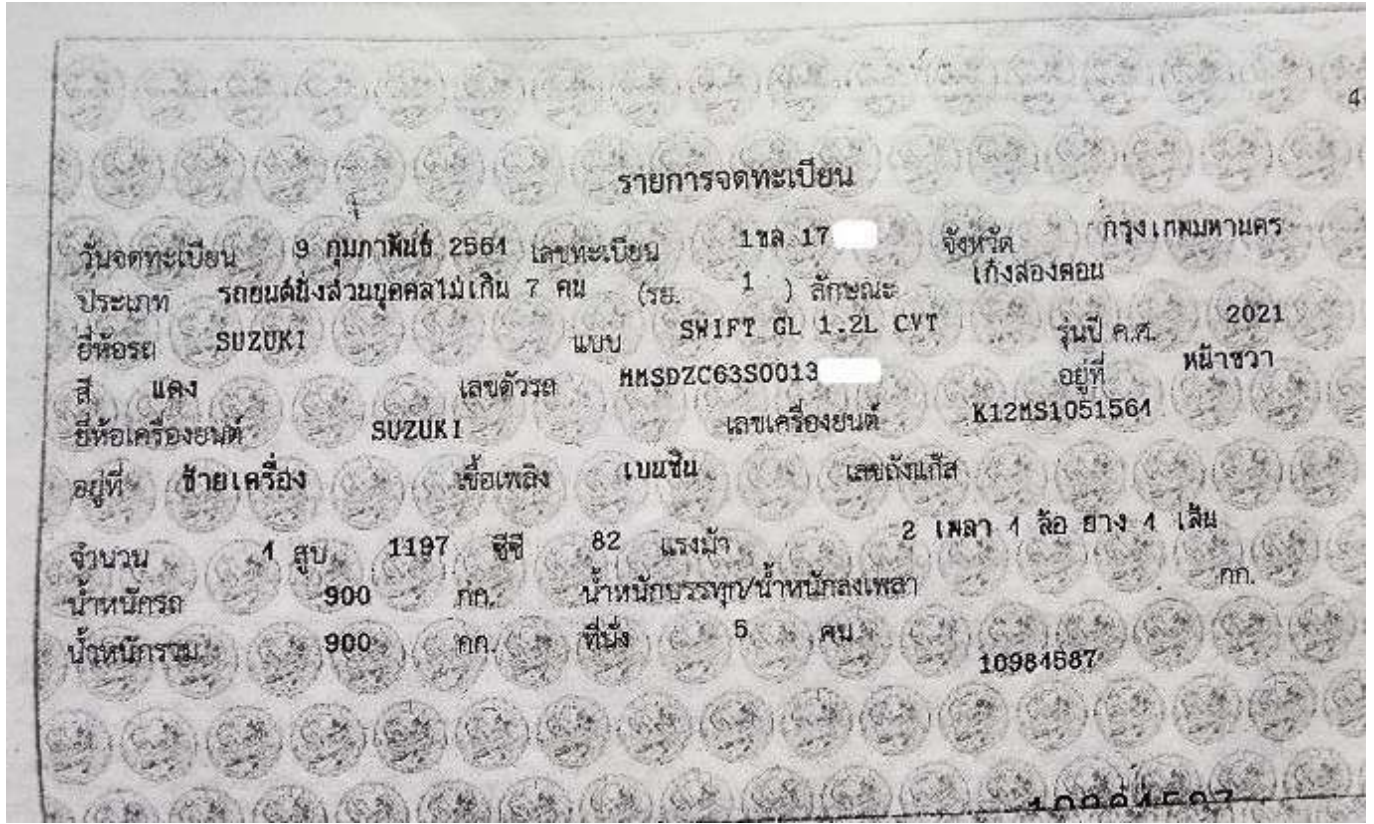 4
รายการจดทะเบียน
วันจดทะเบียน 9 กุมภาพันธ์ 2564 เลขทะเบียน 1ขล 17 จังหวัด กรุงเทพมหานคร
ประเภท รถยนต์นั่งส่วนบุคคลไม่เกิน 7 คน (รย. 1 ) ลักษณะ เก๋งสองตอน
ยี่ห้อรถ SUZUKI แบบ SWIFT GL 1.2L CVT รุ่นปี ค.ศ. 2021
สี แดง เลขตัวรถ MMSDZC63S0013 อยู่ที่ หน้าขวา
ยี่ห้อเครื่องยนต์ SUZUKI เลขเครื่องยนต์ K12MS1051564
อยู่ที่ ซ้ายเครื่อง เชื้อเพลิง เบนซิน เลขถังแก๊ส
จำนวน 4 สูบ 1197 ซีซี 82 แรงม้า 2 เพลา 4 ล้อ ยาง 4 เส้น
น้ำหนักรถ 900 กก. น้ำหนักบรรทุก/น้ำหนักลงเพลา กก.
น้ำหนักรวม 900 กก. ที่นั่ง 5 คน
10984587
10984587